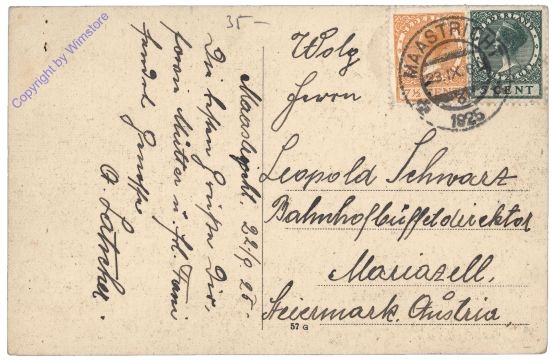 35-
Maastricht 22/9 25.
Die besten Grüße Dir,
Mutter u. frl. Fani
sendet
Wolg
Herrn
Leopold Schwarz
Bahnhofbüffetdirektor
Mariazell,
Steiermark, Austria,
MAASTRICHT
23.IX
1925
7½ CENT
CENT
57 G
Copyright by Wimstore